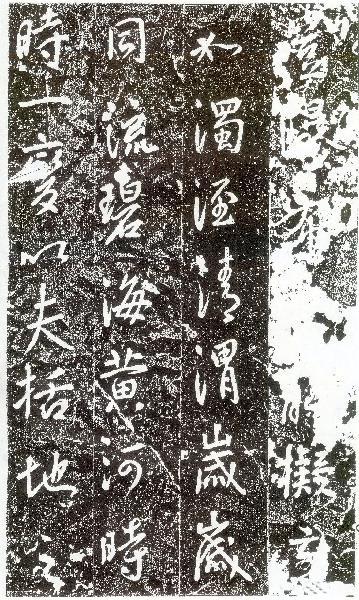 布能擬至
如濁涇清渭歲歲
同流碧海黃河時
時一變以夫括地之